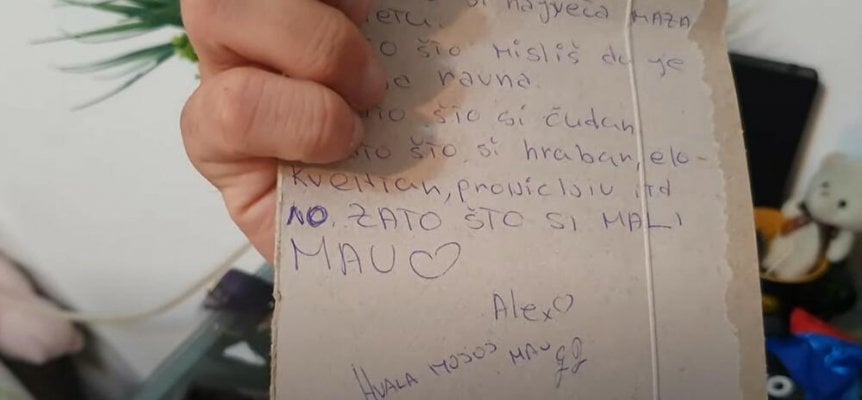 si najveća MAZA
što misliš da je
ravna.
što si čudan
što si hrabar, elo-
kventan, pronicljiv itd
NO. ZATO ŠTO SI MALI
MAU♡
Alex♡
HVALA MOJOJ MAU